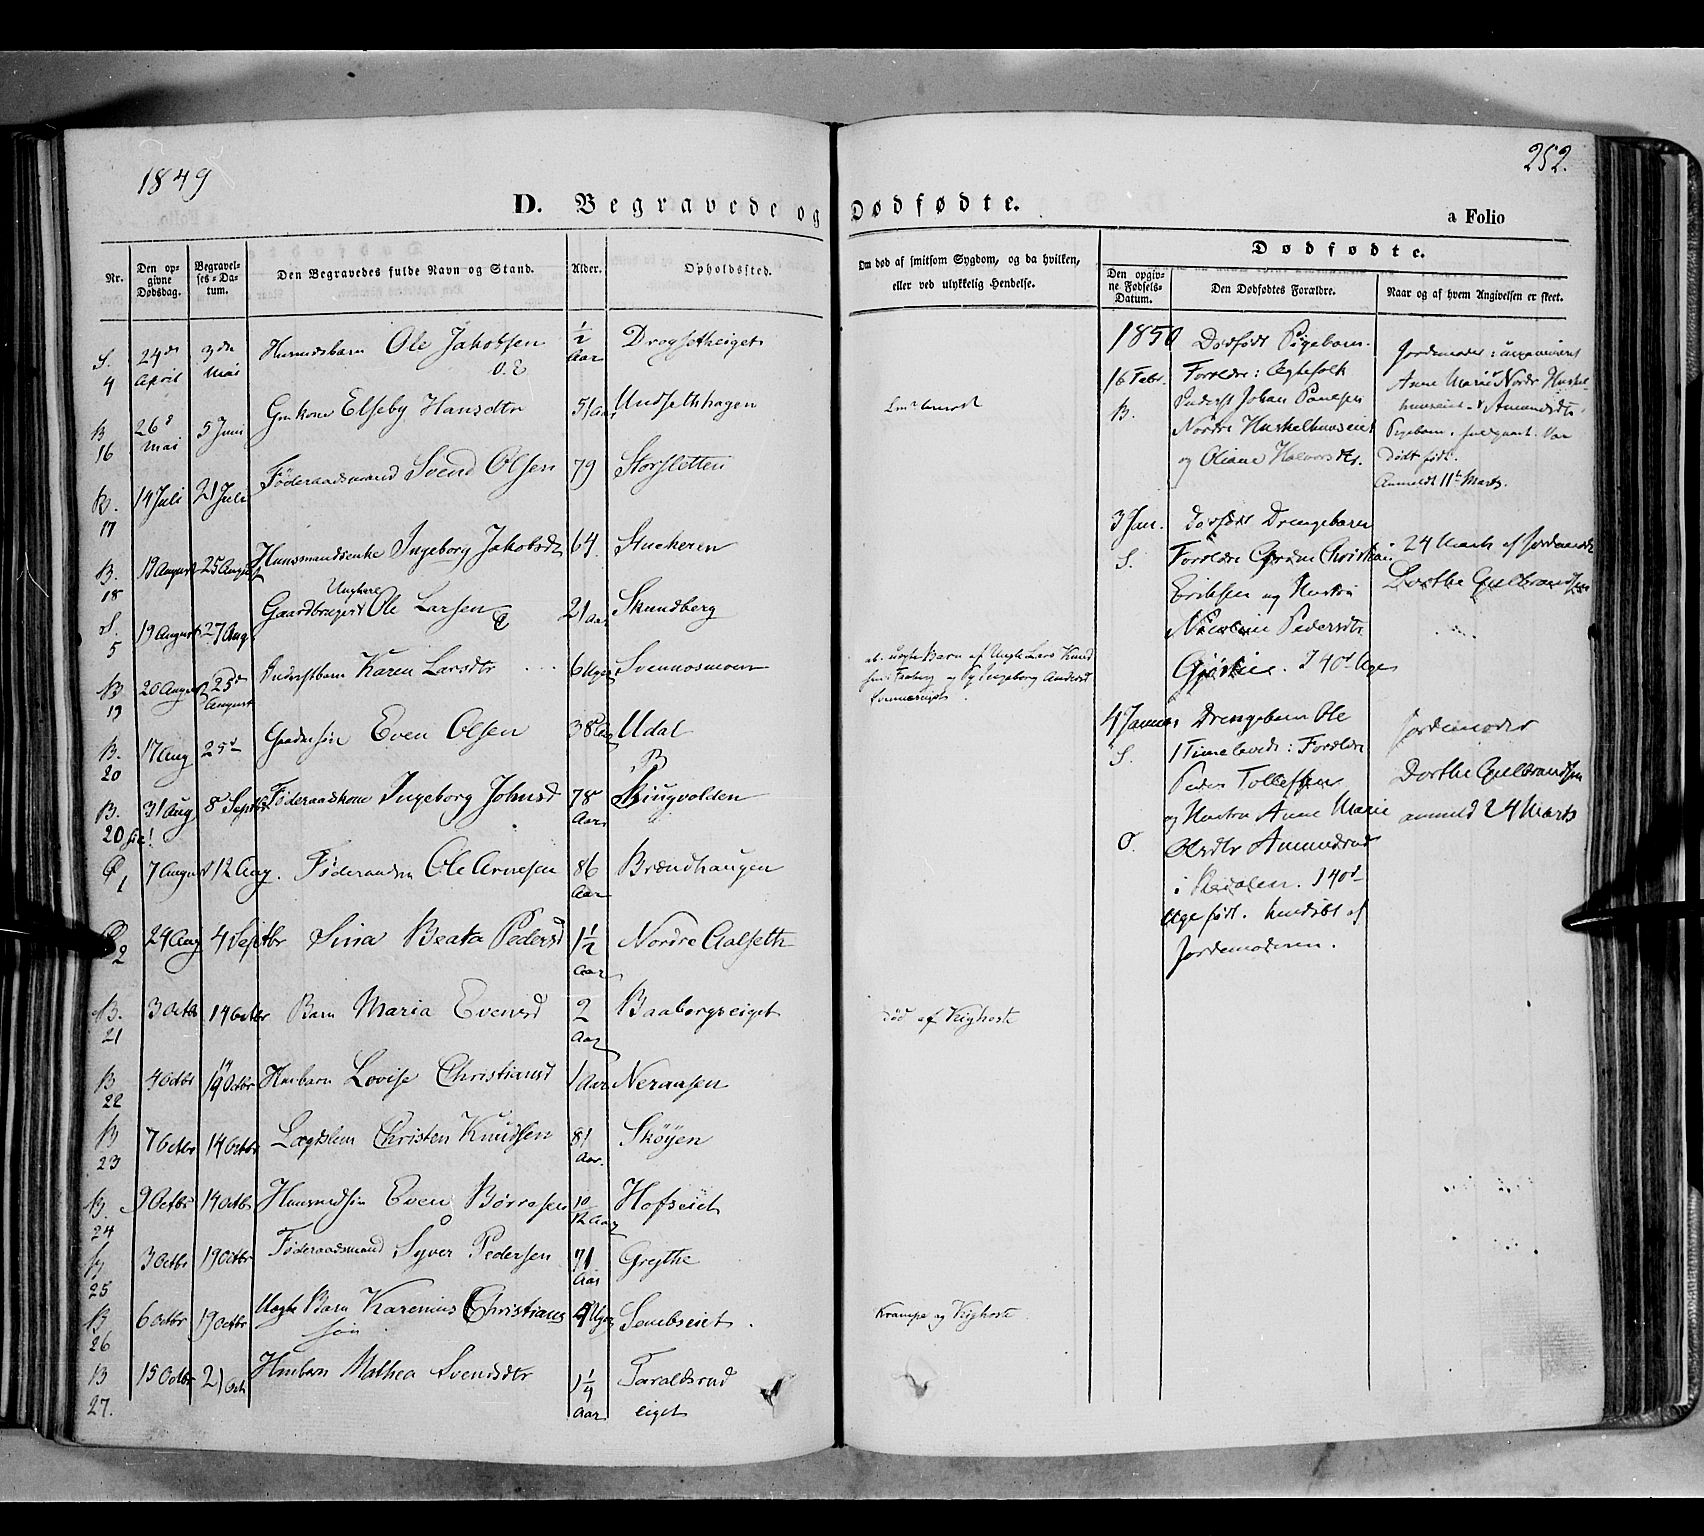 1849
252.
D. Begravede og Dødfødte.
a Folio
Nr.
Den opgivne Dødsdag.
Begravelses-Datum.
Den Begravedes fulde Navn og Stand.
Alder.
Opholdssted.
Om død af smitsom Sygdom, og da hvilken, eller ved ulykkelig Hendelse.
Dødfødte.
Den opgivne Fødsels-Datum.
Den Dødfødtes Forældre.
Naar og af hvem Angivelsen er skeet.
S. 4 24de April 3die Mai Huusmdsbarn Ole Jakobsen 1/2 Aar Drogsetheiget
B 16 26d Mai 5 Juni Elseby Hansdtr 51 Aar Undsethhagen
B. 17 14 Juli 21 Juli Føderaadsmand Svend Olsen 79 Storsletten
B. 18 19 August 25 August Huusmandsenke Ingeborg Jakobsdt 64. Stucheren
Ungkarl
S. 5 19 August 27 Aug. Ole Larsen 21 Aar Skundberg
B 19 20 August 25de August Inderstbarn Karen Larsdtr 6 Uger Svennosmoen
B. 20 17 Aug 25d Gaardmsøn Even Olsen 38 Aar Udal
B. 20 sic! 31 Aug 8 Septbr Føderaadskone Ingeborg Johnsd 78 Aar Ringvolden
1 7 August 12 Aug. Ole Arnesen 86 Aar Brændhaugen
2 24 Aug 4 Septbr Sina Beata Pedersd 1 1/2 Aar Nordre Aalseth
B. 21 3 Octb 14 Octbr Barn Maria Evensd 2 Aar Baabergseiget
død af Kighoste
B 22 4 Octbr 14 Octbr Hmbarn Lovise Christiansd 1 Aar Neraasen
B 23 7 Octbr 14 Octbr Lægdslem Christen Knudsen 81 Aar. Skøyen
B. 24 9 Octbr 14 Octbr Huusmdsøn Even Børresen 10/12 Aar Hofseiet
B. 25 3 Octbr 19 Octbr Føderaadsmand Syver Pedersen 71 Aar Grythe
B 26 6 Octbr 19 Octbr Uægte Barn Karenius Christiansøn 4 Uger
Krampe og Kighoste
B 27. 15 Octbr 21 Oct Hmbarn Mathea Svendsdtr 1 1/4 Aar Taraldsrud eiget
uægte Barn af Ungk. Lars Knudsen
Faaberg og Pg Ingeborg Andersd
1850
16 Febr.
B.
Dødfødt Pigebarn.
Forældre: Ægtefolk
Inderst Johan Paulsen
Nordre Huskelhuuseiet
og Oliane Halvorsdtr.
Jordemoder: uexamineret
Anne Marie Nordr Huskelhuuseiet Amundsdtr
Pigebarn. Var
dødt født.
Anmeldt 11te Marts.
3 Jan.
S.
dødfødt Drengebarn
Forældre Christian
Eriksen og Hustru
Pedersdtr
I 40d Uge
24 Marts af Jordemoder
Dorthe Gulbrandsen
4 Januar
S.
Drengebarn Ole
1 Time levede: Forældre
Peder Tollefsen
og Hustru Anne Marie
Olsdtr Amundrud
I 40de
Uge født. hjemdøbt af
Jordemoderen.
Jordemoder
Dorthe Gulbrandsen
anmeld 24 Marts